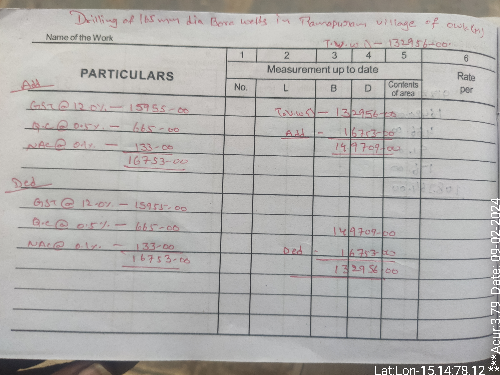 Drilling of 165mm dia Bore wells in Ramapuram village of owk(m)
Name of the Work
T.V.W.D - 132956-00
PARTICULARS
1 2 3 4 5 6
Measurement up to date
Rate per
No. L B D Contents of area
Add
GST @ 12.0% - 15955-00
T.V.W.D - 132956-00
Q.C @ 0.5% - 665-00
Add - 16753-00
NAC @ 0.1% - 133-00
149709-00
16753-00
Ded
GST @ 12.0% - 15955-00
Q.C @ 0.5% - 665-00
149709-00
NAC @ 0.1% - 133-00
Ded - 16753-00
16753-00
132956-00
Lat:Lon-15.14:78.12
***Acur:3.79 Date: 09-02-2024